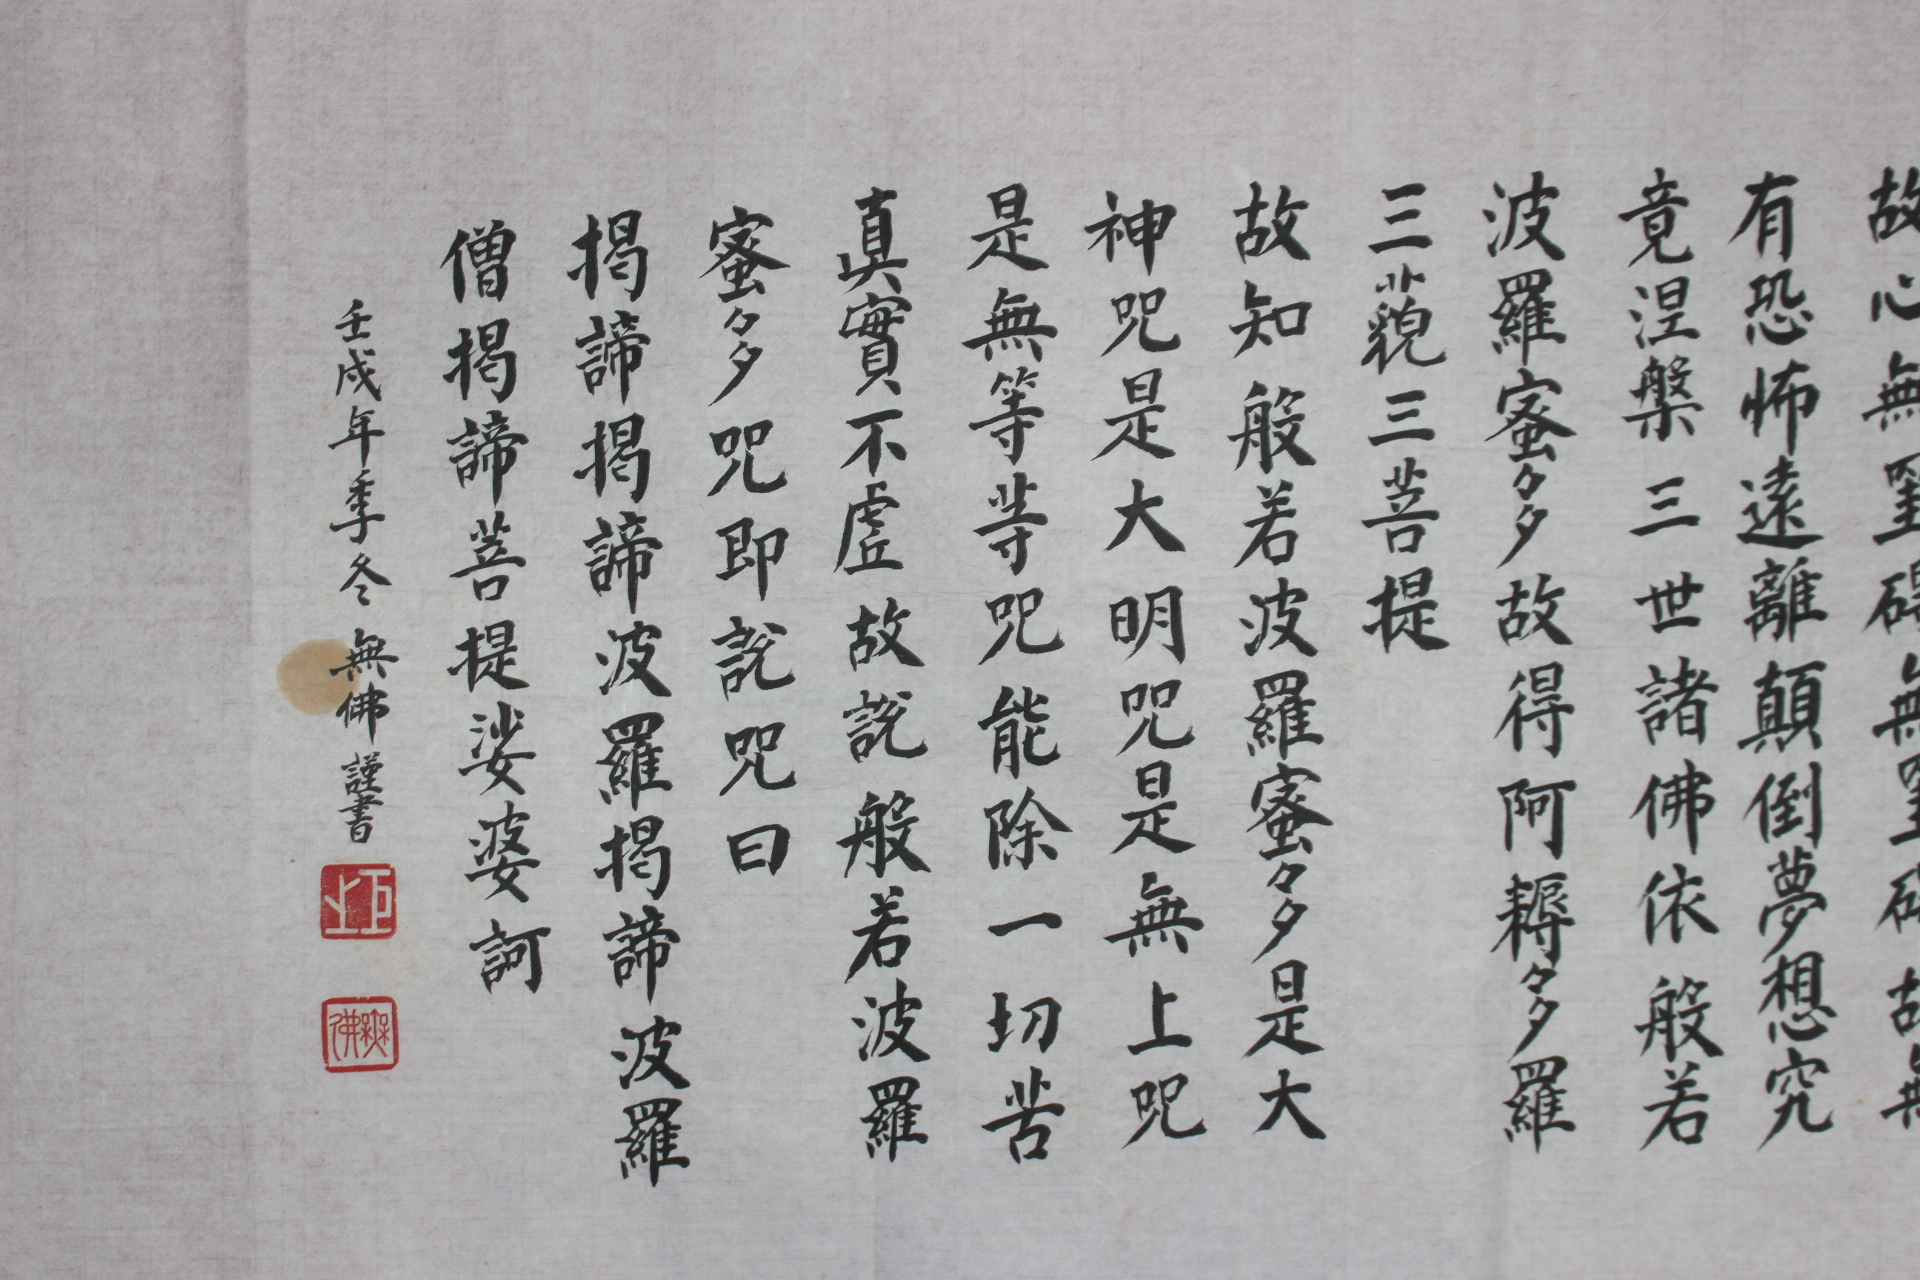 故心無罣礙無罣礙故無
有恐怖遠離顛倒夢想究
竟涅槃三世諸佛依般若
波羅蜜多故得阿耨多羅
三藐三菩提
故知般若波羅蜜多是大
神咒是大明咒是無上咒
是無等等咒能除一切苦
真實不虛故說般若波羅
蜜多咒即說咒曰
揭諦揭諦波羅揭諦波羅
僧揭諦菩提娑婆訶
壬戌年季冬 無佛謹書
無佛